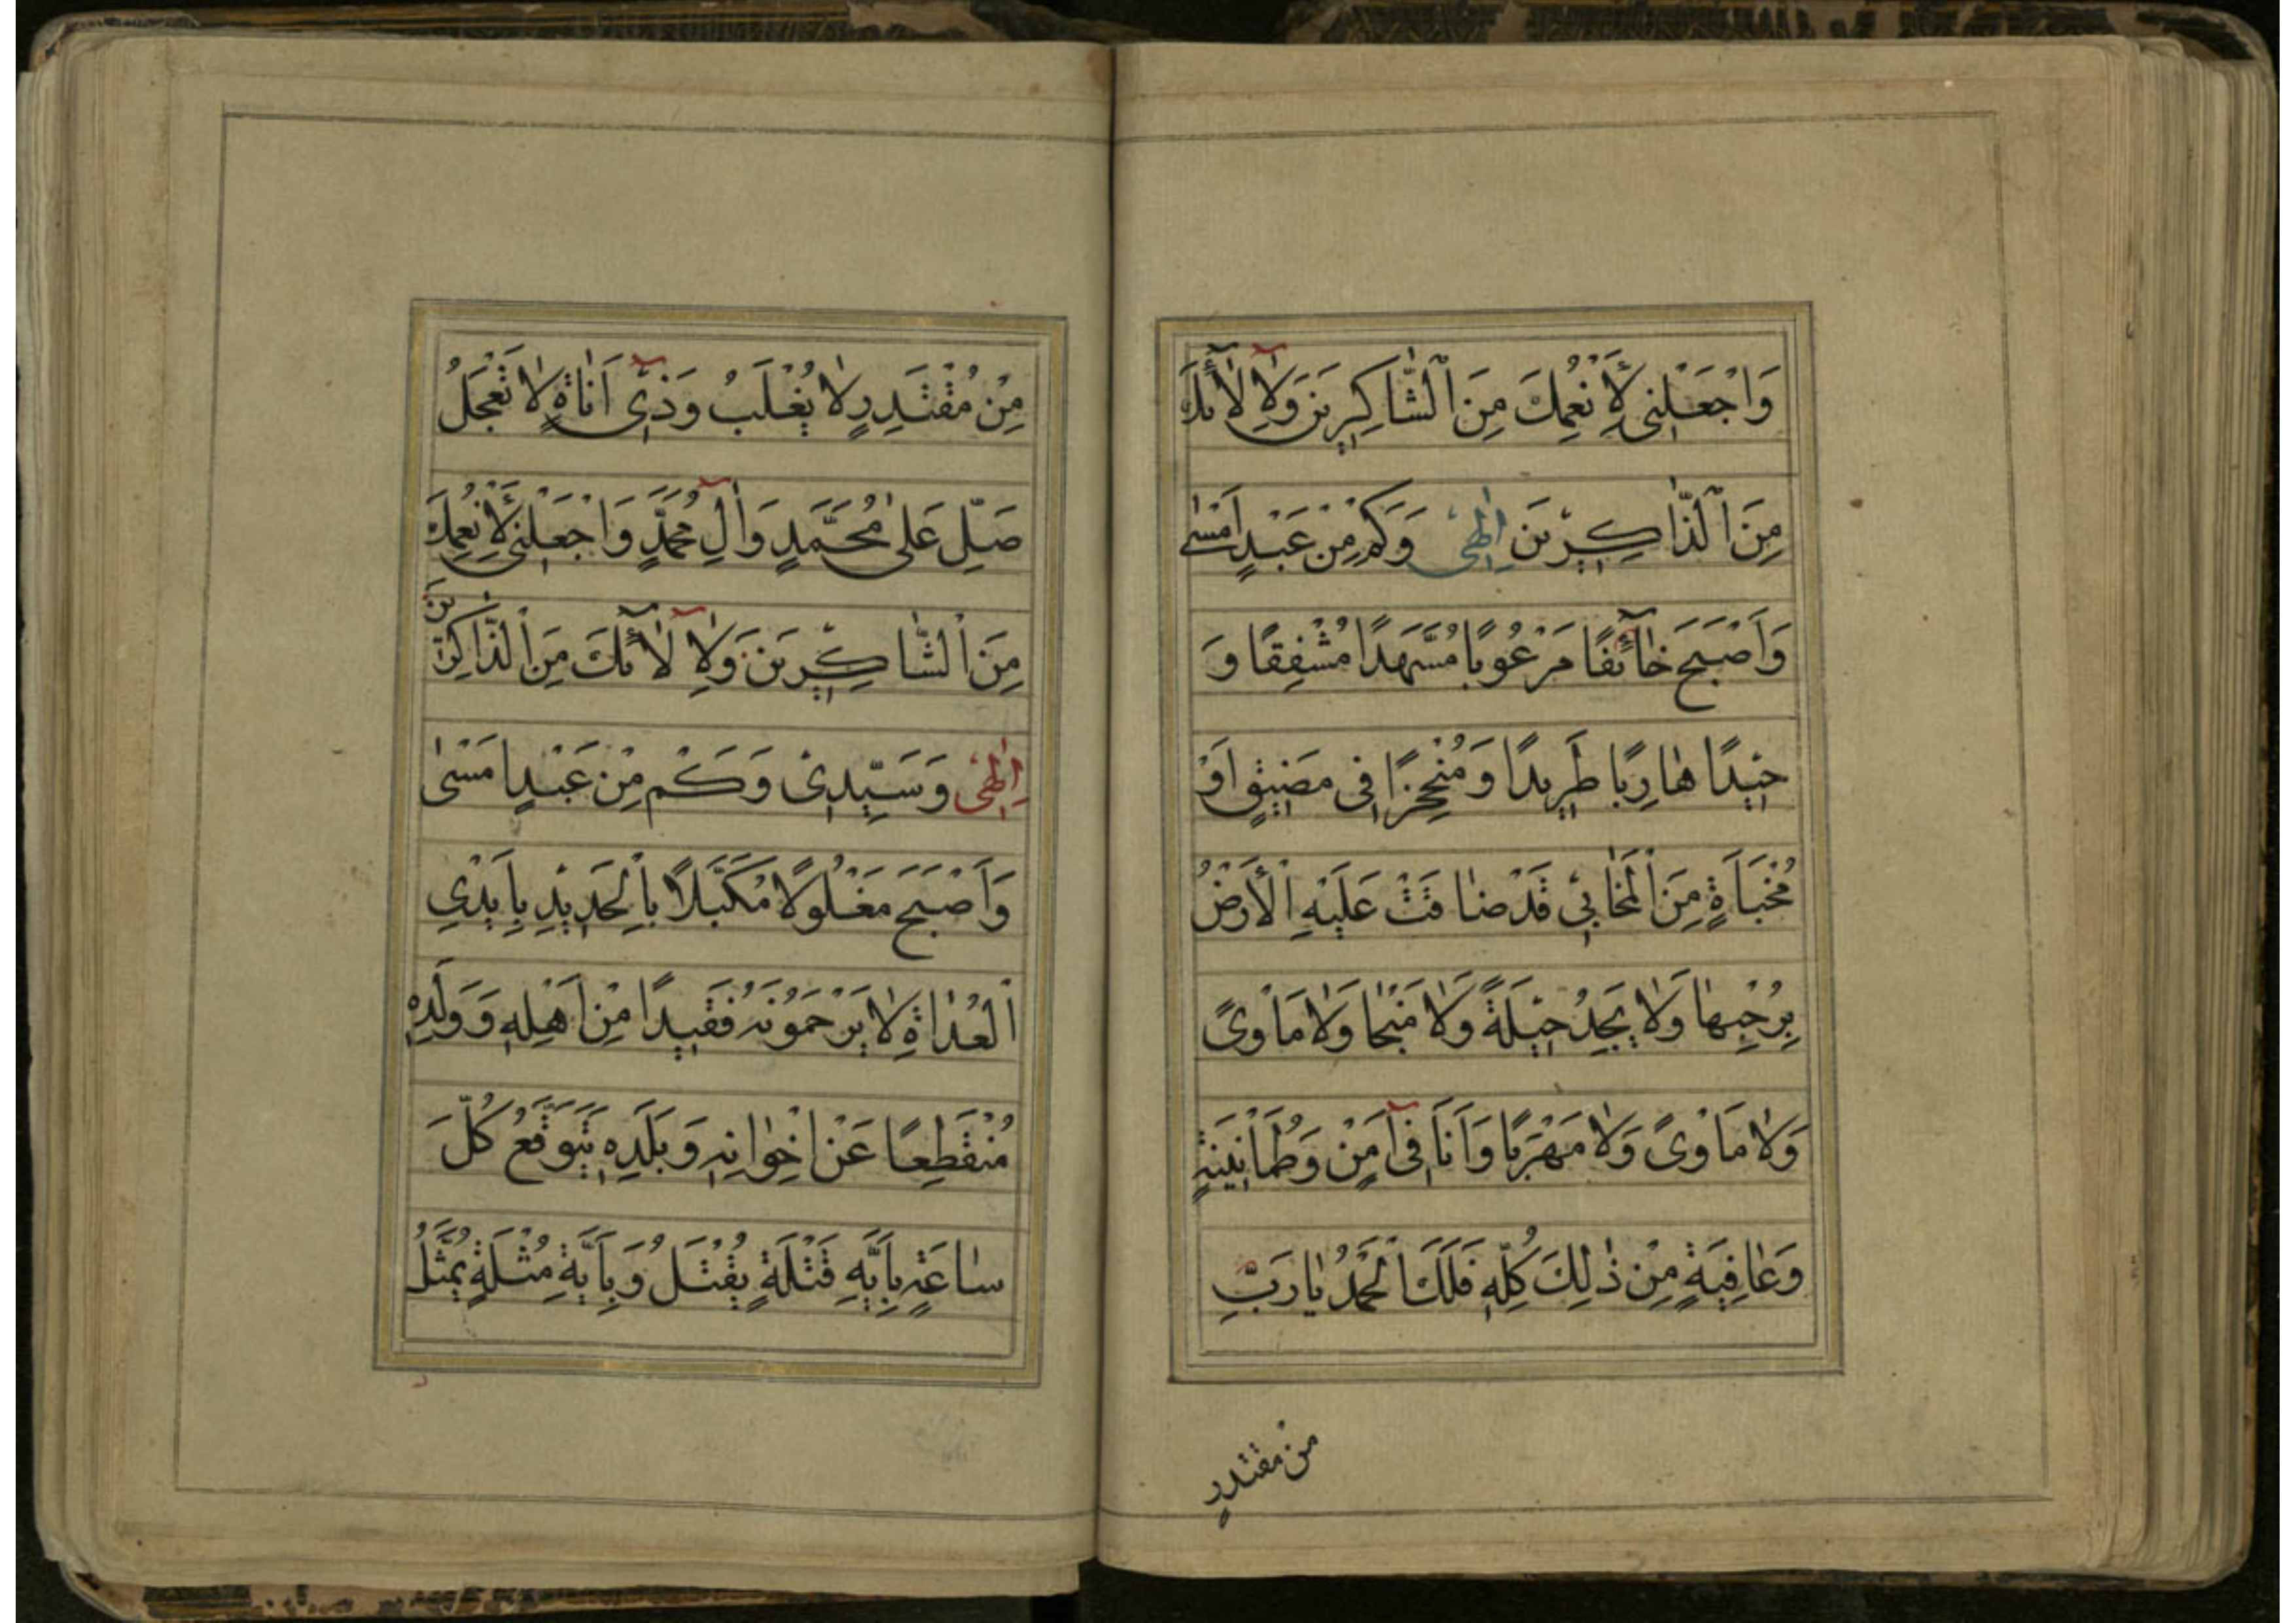 وَاجْعَلْنِي لِأَنْعُمِكَ مِنَ الشَّاكِرِينَ وَلِآلَائِكَ
مِنَ الذَّاكِرِينَ اِلٰهِي وَكَمْ مِنْ عَبْدٍ اَمْسٰى
وَاَصْبَحَ خَائِفًا مَرْعُوبًا مُسَهَّدًا مُشْفِقًا وَ
حِيْدًا هَارِبًا طَرِيدًا وَمُنْحَجِزًا فِي مَضِيقٍ اَوْ
مُخْبَاَةٍ مِنَ الْمَخَابِي قَدْ ضَاقَتْ عَلَيْهِ الْأَرْضُ
بِرُحْبِهَا وَلَا يَجِدُ حِيلَةً وَلَا مَنْجَا وَلَا مَاْوًى
وَلَا مَاْوًى وَلَا مَهْرَبًا وَاَنَا فِي اَمْنٍ وَطُمَاْنِينَةٍ
وَعَافِيَةٍ مِنْ ذٰلِكَ كُلِّهِ فَلَكَ الْحَمْدُ يَا رَبِّ
من مقتدرٍ
مِنْ مُقْتَدِرٍ لَا يُغْلَبُ وَذِي اَنَاةٍ لَا تَعْجَلُ
صَلِّ عَلٰى مُحَمَّدٍ وَآلِ مُحَمَّدٍ وَاجْعَلْنِي لِأَنْعُمِكَ
مِنَ الشَّاكِرِينَ وَلِآلَائِكَ مِنَ الذَّاكِرِينَ
اِلٰهِي وَسَيِّدِي وَكَمْ مِنْ عَبْدٍ اَمْسٰى
وَاَصْبَحَ مَغْلُولًا مُكَبَّلًا بِالْحَدِيدِ بِاَيْدِي
الْعُدَاةِ لَا يَرْحَمُونَهُ فَقِيدًا مِنْ اَهْلِهِ وَوَلَدِهِ
مُنْقَطِعًا عَنْ اِخْوَانِهِ وَبَلَدِهِ يَتَوَقَّعُ كُلَّ
سَاعَةٍ بِاَيَّةِ قَتْلَةٍ يُقْتَلُ وَبِاَيَّةِ مُثْلَةٍ يُمَثَّلُ